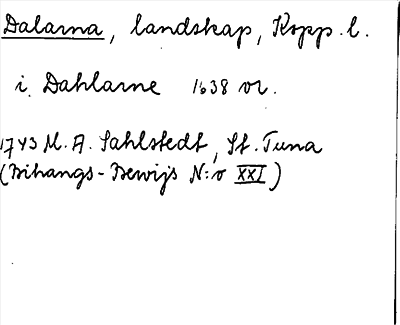 Dalarna, landskap, Kopp. l.
i Dahlarne 1638 or.
1743 M. A. Sahlstedt, St. Tuna
(Bihangs-Bewijs N:o XXI)